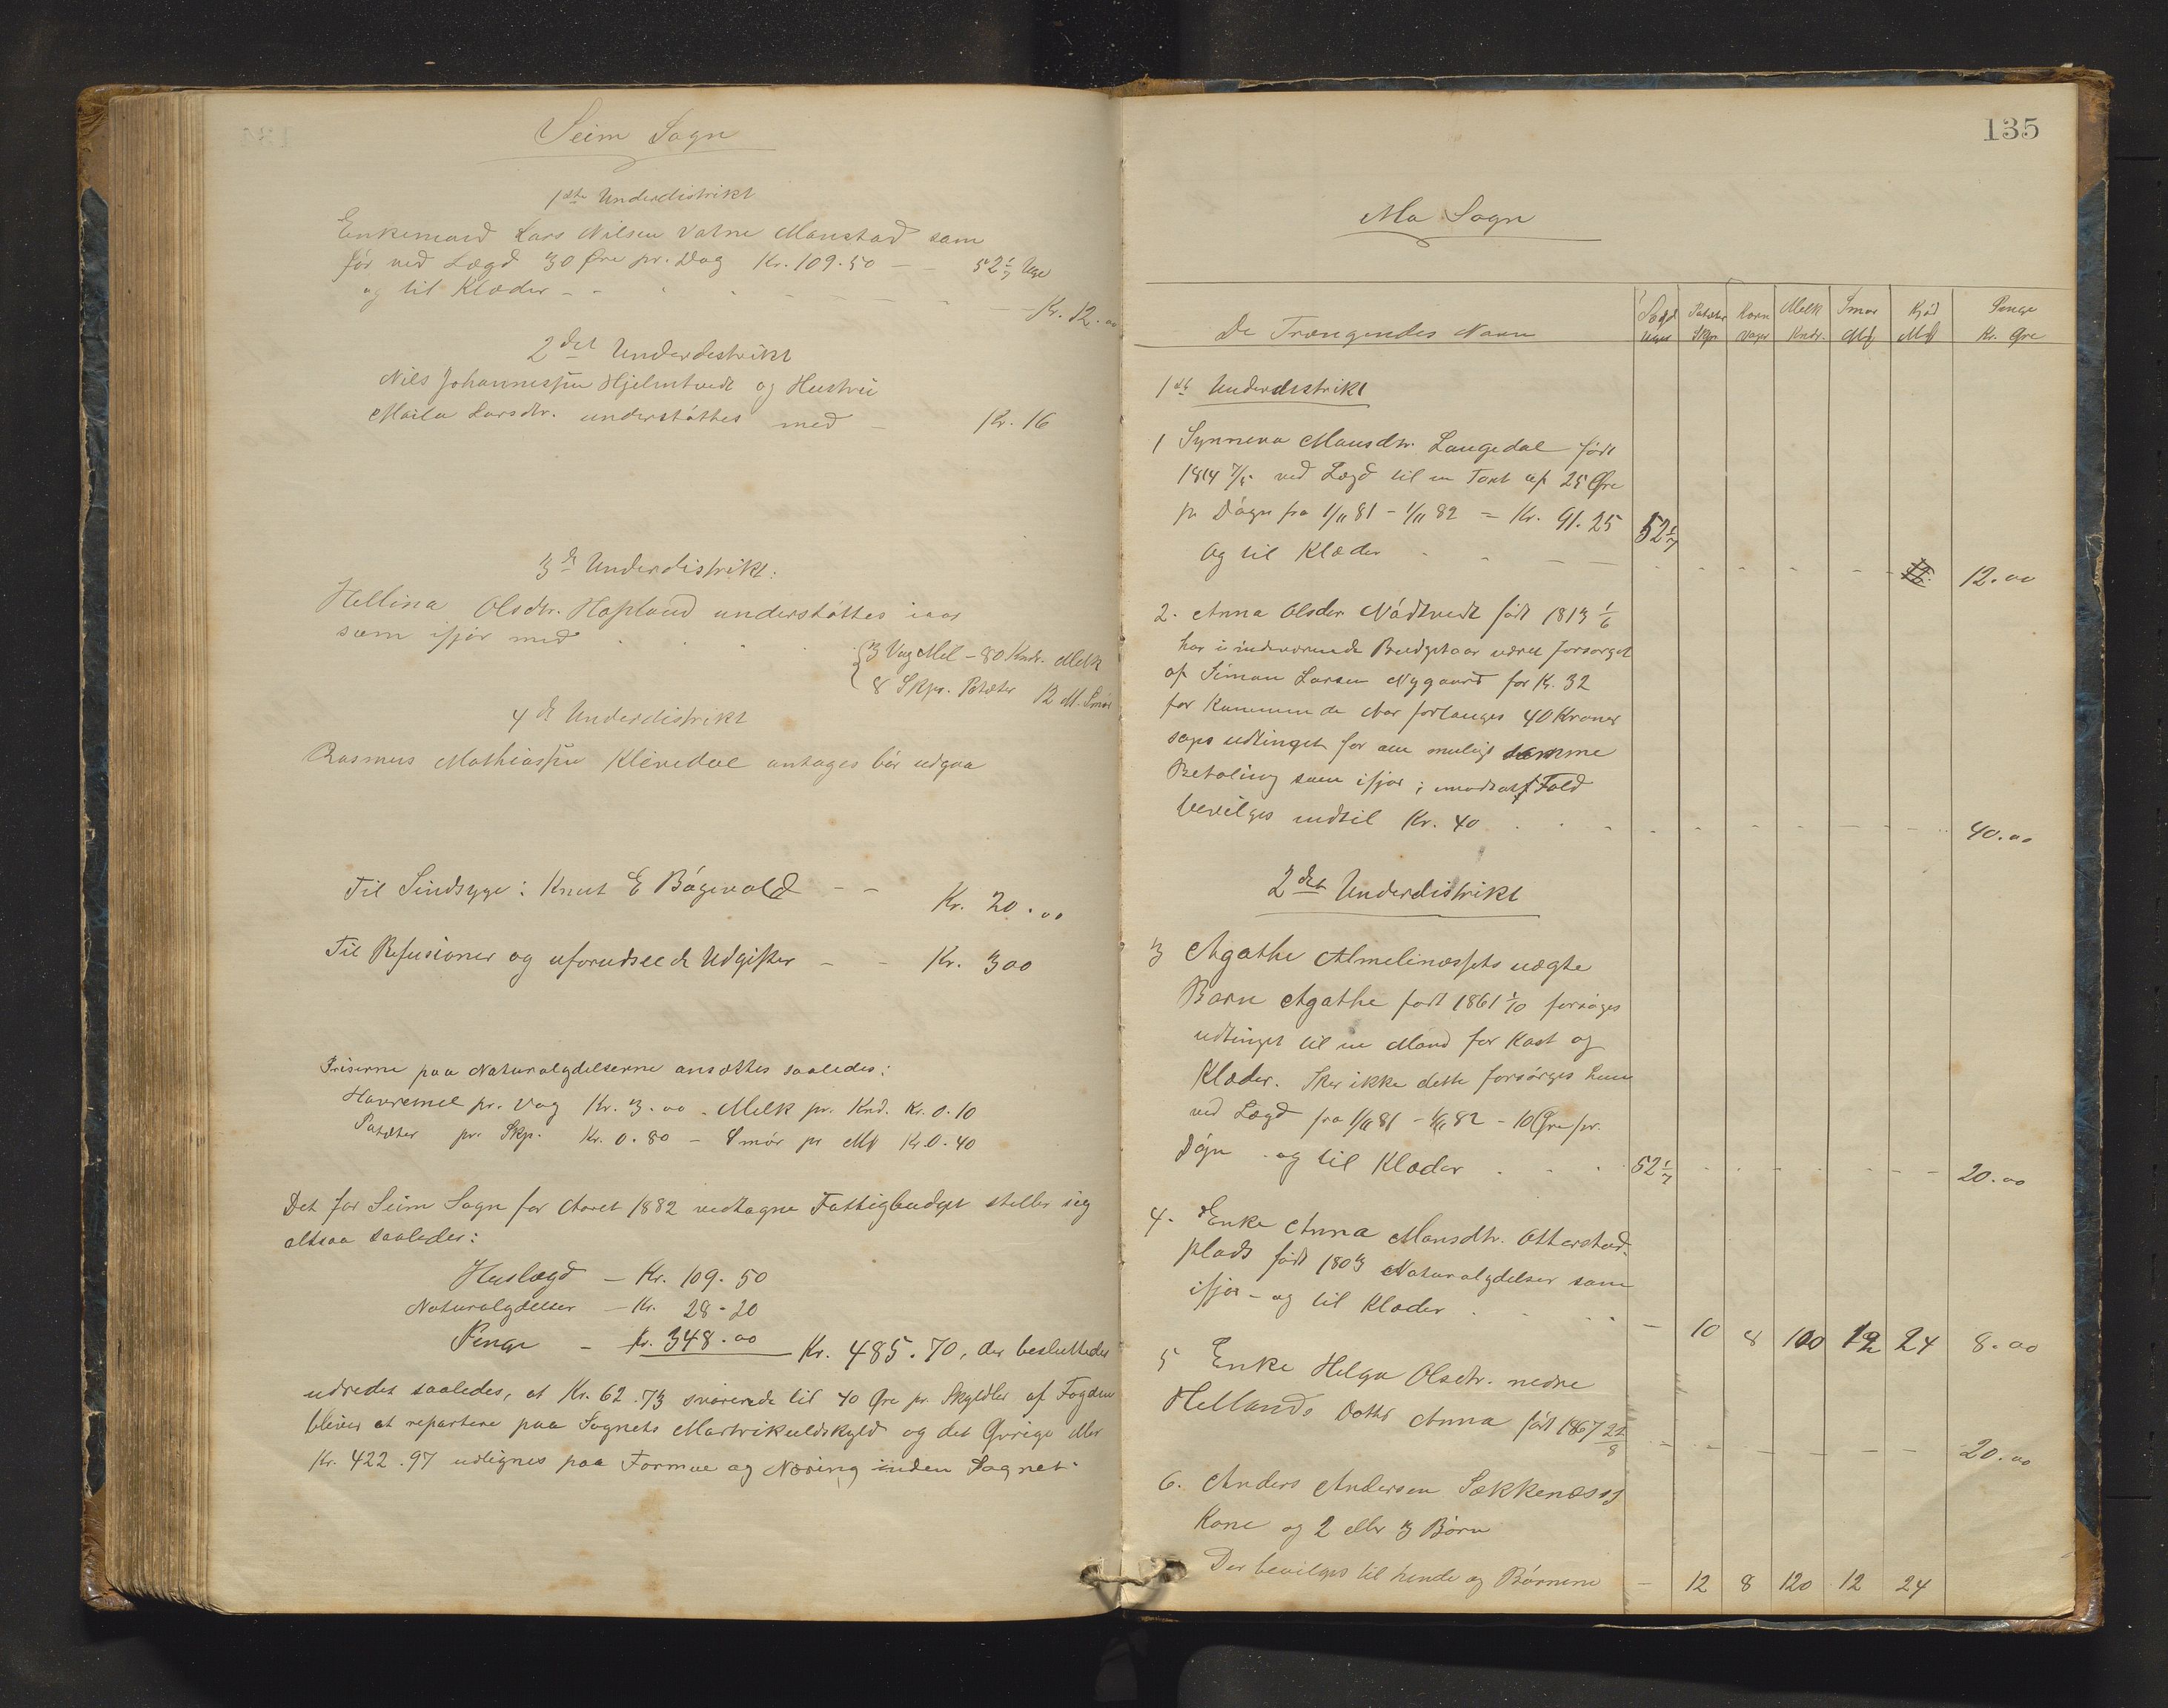 Seim Sogn
1ste Underdistrikt
Enkemand Lars Nilsen Vatne Manstad som
før ved Lægd 30 Øre pr. Dag Kr. 109.50 — — 52 1/7 Uge
og til Klæder - - - - - - - Kr. 12.00
2det Underdestrikt
Nils Johannessen Hjelmtvedt og Hustru
Marta Larsdtr. understøttes med — Kr. 16
3de Underdistrikt:
Hellina Olsdtr. Hopland understøttes iaar
som ifjor med
3 Vog Mel - 80 Kndr. Melk
8 Skpr. Poteter 12 M. Smør
4de Underdistrikt
Rasmus Mathiassen Klevedal antages bør udgaa
Til Sindsyge: Knut E Bøgevold - - Kr. 20.00
Til Refusioner og uforudseede Udgifter - - Kr. 300
Priserne paa Naturalydelserne ansættes saaledes:
Havremel pr. Vog Kr. 3.00. Melk pr. Knd. Kr. 0.10
Poteter pr. Skp. Kr. 0.80 - Smør pr M Kr 0.40
Det for Seim Sogn for Aaret 1882 vedtagne Fattigbudget stiller sig
altsaa saaledes:
Huslægd - Kr. 109.50
Naturalydelser - Kr. 28.20
Penge - Kr. 348.00 Kr. 485.70, der besluttedes
udredet saaledes, at Kr. 62.73 svarende til 40 Øre pr. Skyldlr af Fogden
bliver at repartere paa Sognets Martrikuldskyld og det Øvrige eller
Kr. 422.97 udlignes paa Formue og Næring inden Sognet.
135
Mo Sogn
De Trængendes Navn
Lægd Uger
Poteter Skpr.
Korn Voger
Melk Kndr.
Smør M
Kjød M
Penge Kr. Øre
1ste Underdistrikt
1 Synneva Mansdtr. Langedal født
1814 7/5 ved Lægd til en Taxt af 25 Øre
pr Døgn fra 1/11 81 - 1/11 82 = Kr. 91.25 52 1/7
Og til Klæder - - - - 12.00
2. Anna Olsdtr Nødtvedt født 1813 1/6
har i indeværende Budgetaar været forsørget
af Simon Larsen Nygaard for Kr. 32
for Kommende Aar forlanges 40 Kroner
søges udtinget for om muligt samme
Betaling som ifjor; i modsat Fald
bevilges indtil Kr. 40 - - - 40.00
2det Underdistrikt
3 Agathe Almelinæssets uægte
Barn Agathe født 1861 1/10 forsøges
udtinget til en Mand for Kost og
Klæder. Sker ikke dette forsørges hun
ved Lægd fra 1/11 81 - 1/11 82 - 10 Øre pr.
Døgn - og til Klæder . . . 52 1/7 - - - 20.00
4. Enke Anna Mansdtr. Otterstad-
plads født 1803 Naturalydelser som
ifjor - og til Klæder . . . — 10 8 100 12 24 8.00
5 Enke Helga Olsdtr. nedre
Hellands Datter Anna født 1867 21/8 - - - 20.00
6. Anders Andersen Sækkenæss's
Kone og 2 eller 3 Børn
Der bevilges til hende og Børnene — 12 8 120 12 24